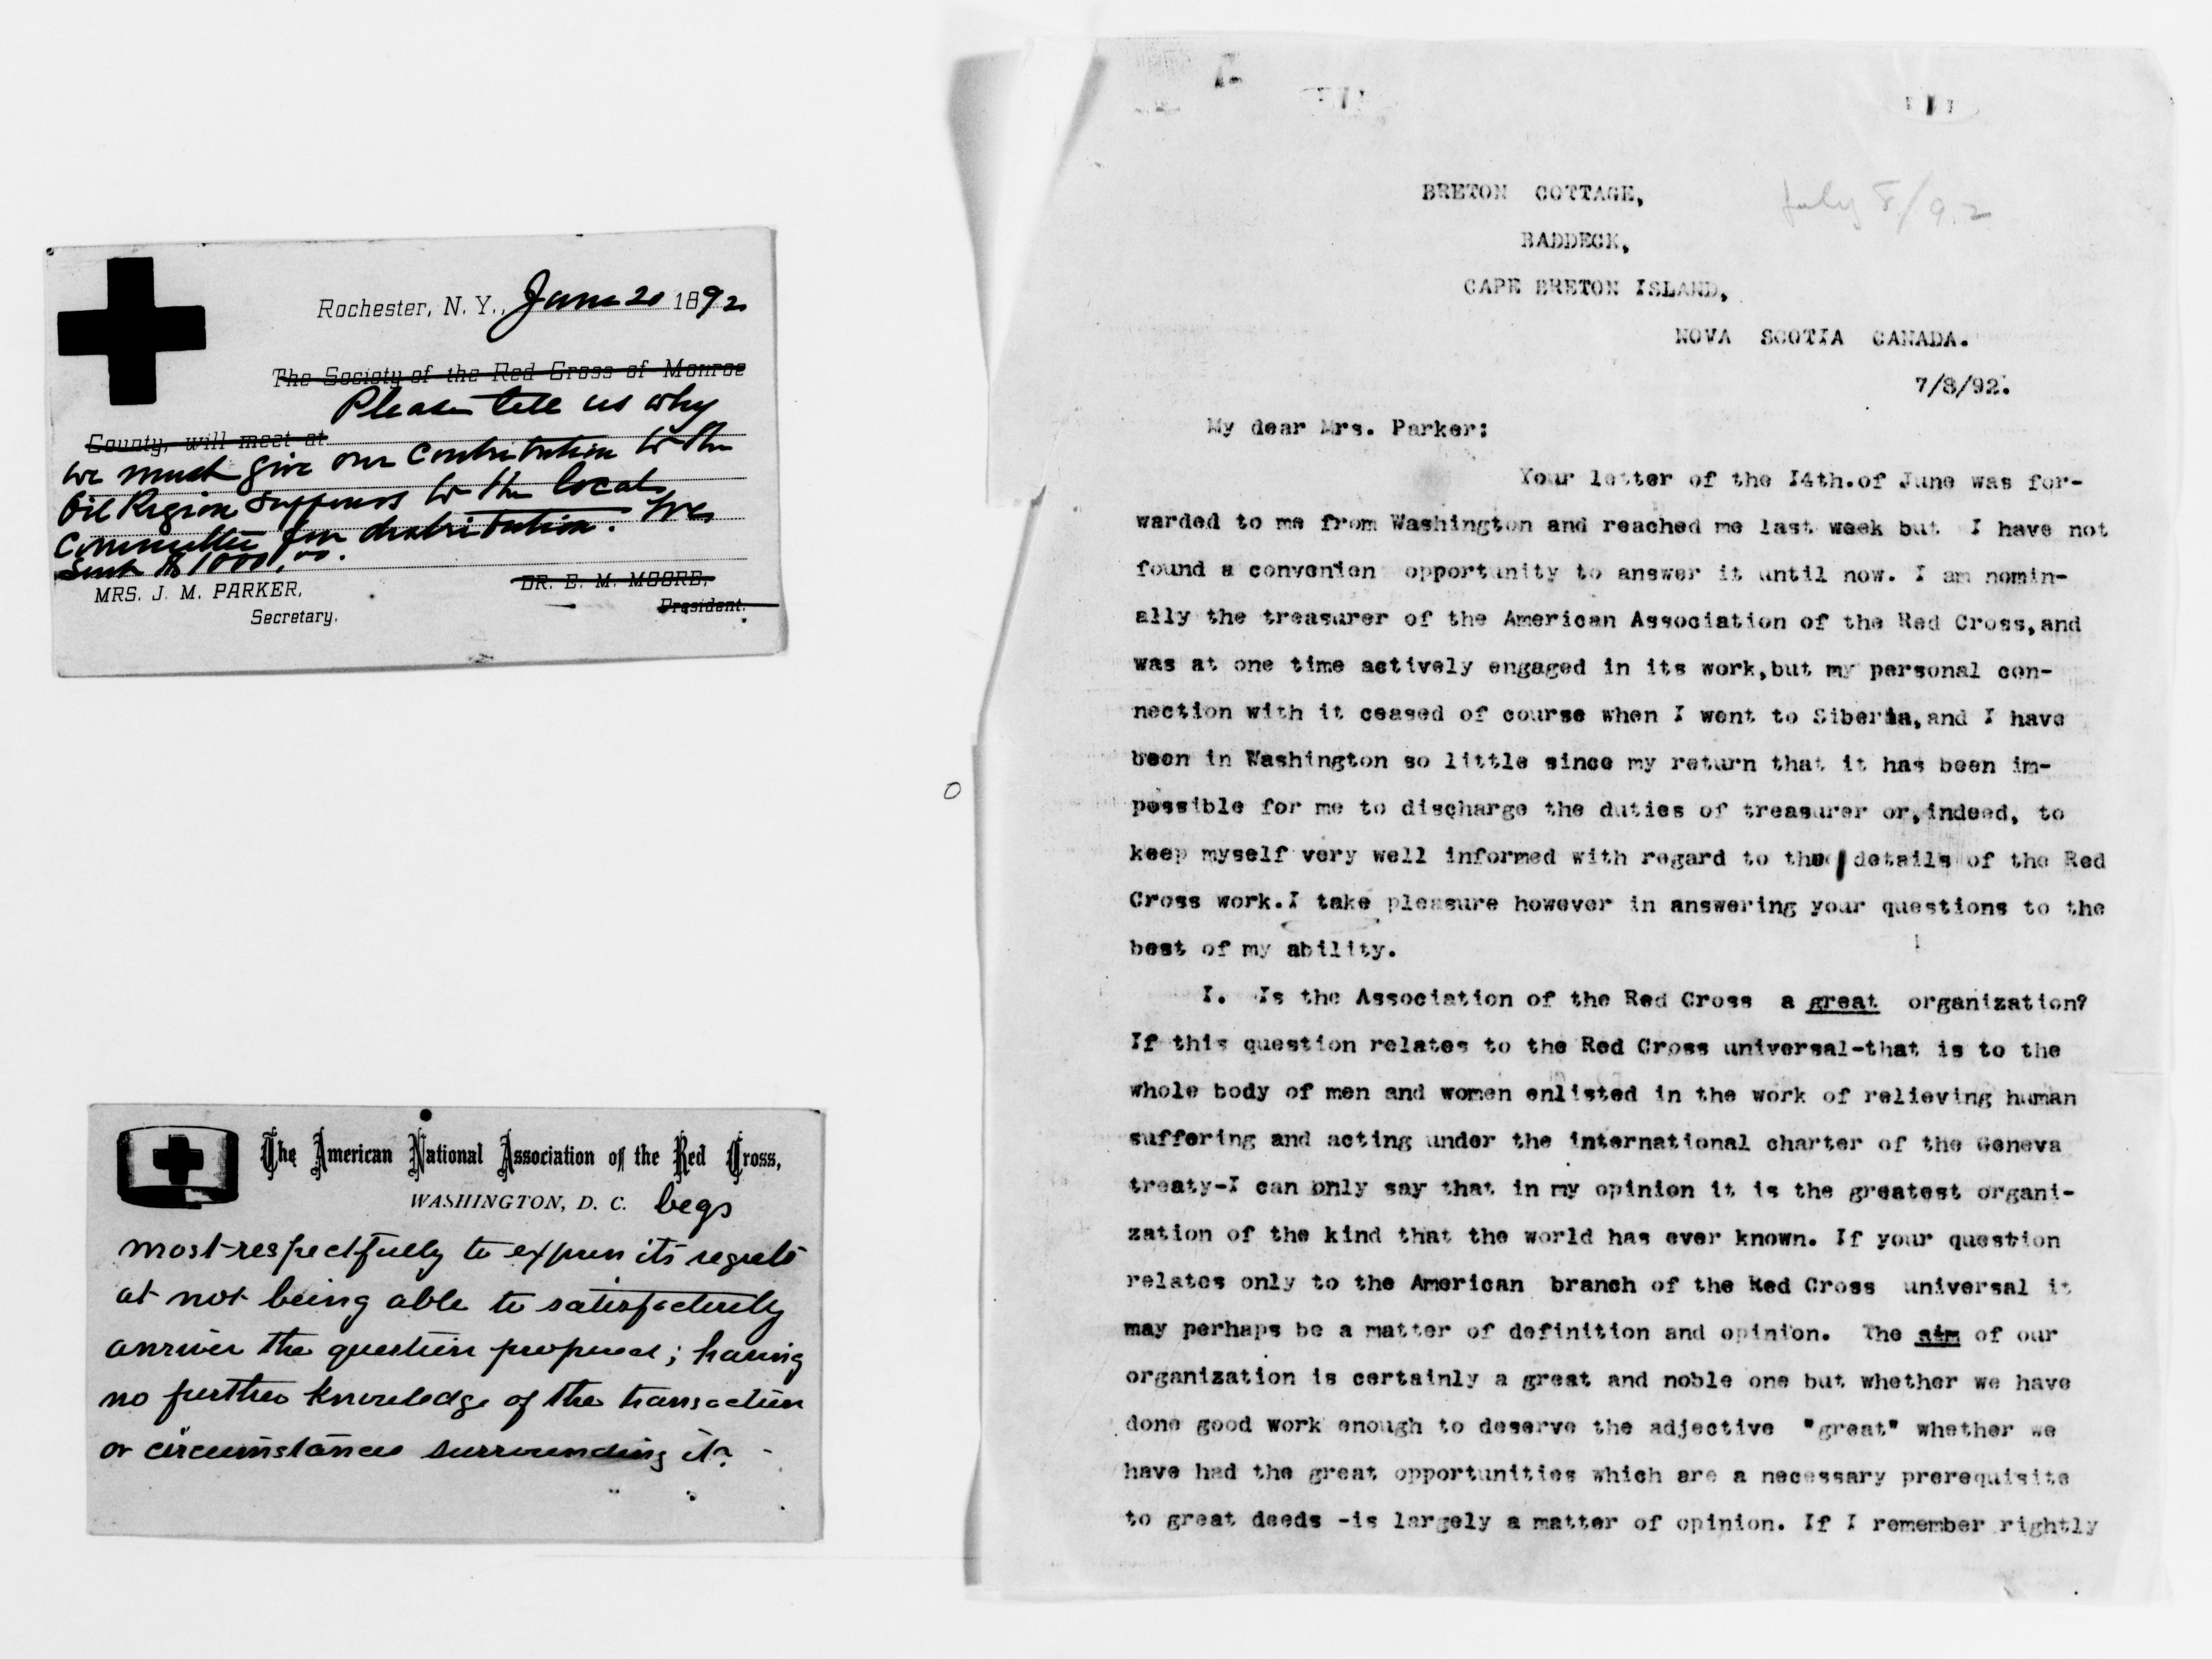 Rochester, N. Y., June 20 1892
The Society of the Red Cross of Monroe
Please tell us why
County, will meet at
we must give our contribution to the
Oil Region sufferers to the local
Committee for distribution. We
sent $1000,00.
MRS. J. M. PARKER,
Secretary.
DR. E. M. MOORE,
President.
The American National Association of the Red Cross,
WASHINGTON, D. C. begs
most respectfully to express its regrets
at not being able to satisfactorily
answer the question proposed; having
no further knowledge of the transaction
or circumstances surrounding it.
BRETON COTTAGE,
July 8/92
BADDECK,
CAPE BRETON ISLAND,
NOVA SCOTIA CANADA.
7/8/92.
My dear Mrs. Parker:
Your letter of the I4th.of June was for-
warded to me from Washington and reached me last week but I have not
found a convenien opportunity to answer it until now. I am nomin-
ally the treasurer of the American Association of the Red Cross,and
was at one time actively engaged in its work,but my personal con-
nection with it ceased of course when I went to Siberia,and I have
been in Washington so little since my return that it has been im-
possible for me to discharge the duties of treasurer or,indeed, to
keep myself very well informed with regard to the details of the Red
Cross work.I take pleasure however in answering your questions to the
best of my ability.
I. Is the Association of the Red Cross a great organization?
If this question relates to the Red Cross universal-that is to the
whole body of men and women enlisted in the work of relieving human
suffering and acting under the international charter of the Geneva
treaty-I can only say that in my opinion it is the greatest organi-
zation of the kind that the world has ever known. If your question
relates only to the American branch of the Red Cross universal it
may perhaps be a matter of definition and opinion. The aim of our
organization is certainly a great and noble one but whether we have
done good work enough to deserve the adjective "great" whether we
have had the great opportunities which are a necessary prerequisite
to great deeds -is largely a matter of opinion. If I remember rightly